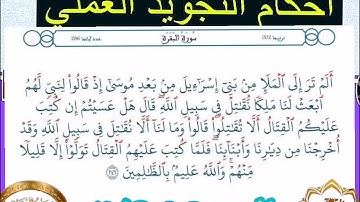 أحكام التجويد العملي
ترتيبها 002
سُورَةُ البَقَرَةِ
عدد آياتها 286
أَلَمْ تَرَ إِلَى ٱلْمَلَإِ مِنۢ بَنِىٓ إِسْرَٰٓءِيلَ مِنۢ بَعْدِ مُوسَىٰٓ إِذْ قَالُوا۟ لِنَبِىٍّ لَّهُمُ
ٱبْعَثْ لَنَا مَلِكًا نُّقَٰتِلْ فِى سَبِيلِ ٱللَّهِ قَالَ هَلْ عَسَيْتُمْ إِن كُتِبَ
عَلَيْكُمُ ٱلْقِتَالُ أَلَّا تُقَٰتِلُوا۟ قَالُوا۟ وَمَا لَنَآ أَلَّا نُقَٰتِلَ فِى سَبِيلِ ٱللَّهِ وَقَدْ
أُخْرِجْنَا مِن دِيَٰرِنَا وَأَبْنَآئِنَا فَلَمَّا كُتِبَ عَلَيْهِمُ ٱلْقِتَالُ تَوَلَّوْا۟ إِلَّا قَلِيلًا
مِّنْهُمْ وَٱللَّهُ عَلِيمٌۢ بِٱلظَّٰلِمِينَ ٢٤٦